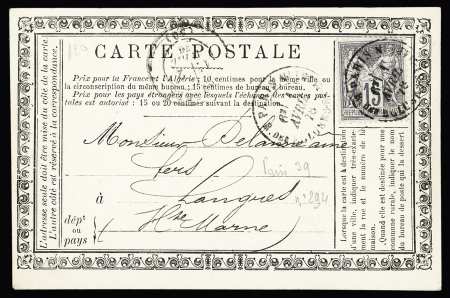 CARTE POSTALE
Prix pour la France et l'Algérie: 10 centimes pour la même ville ou
la circonscription du même bureau; 15 centimes de bureau à bureau.
Prix pour les pays étrangers avec lesquels l'échange des cartes pos-
tales est autorisé: 15 ou 20 centimes suivant la destination.
L'adresse seule doit être mise du côté de la carte.
L'autre côté est réservé à la correspondance.
Monsieur
Fers
à Langres
dépt
ou
pays
Hte Marne
Paris 39
n° 294
Lorsque la carte est à destination
d'une ville, indiquer très-exacte-
ment la rue et le numéro de la
maison.
Quand elle est destinée pour une
commune rurale, indiquer le nom
du bureau de poste qui la dessert
15
PARIS